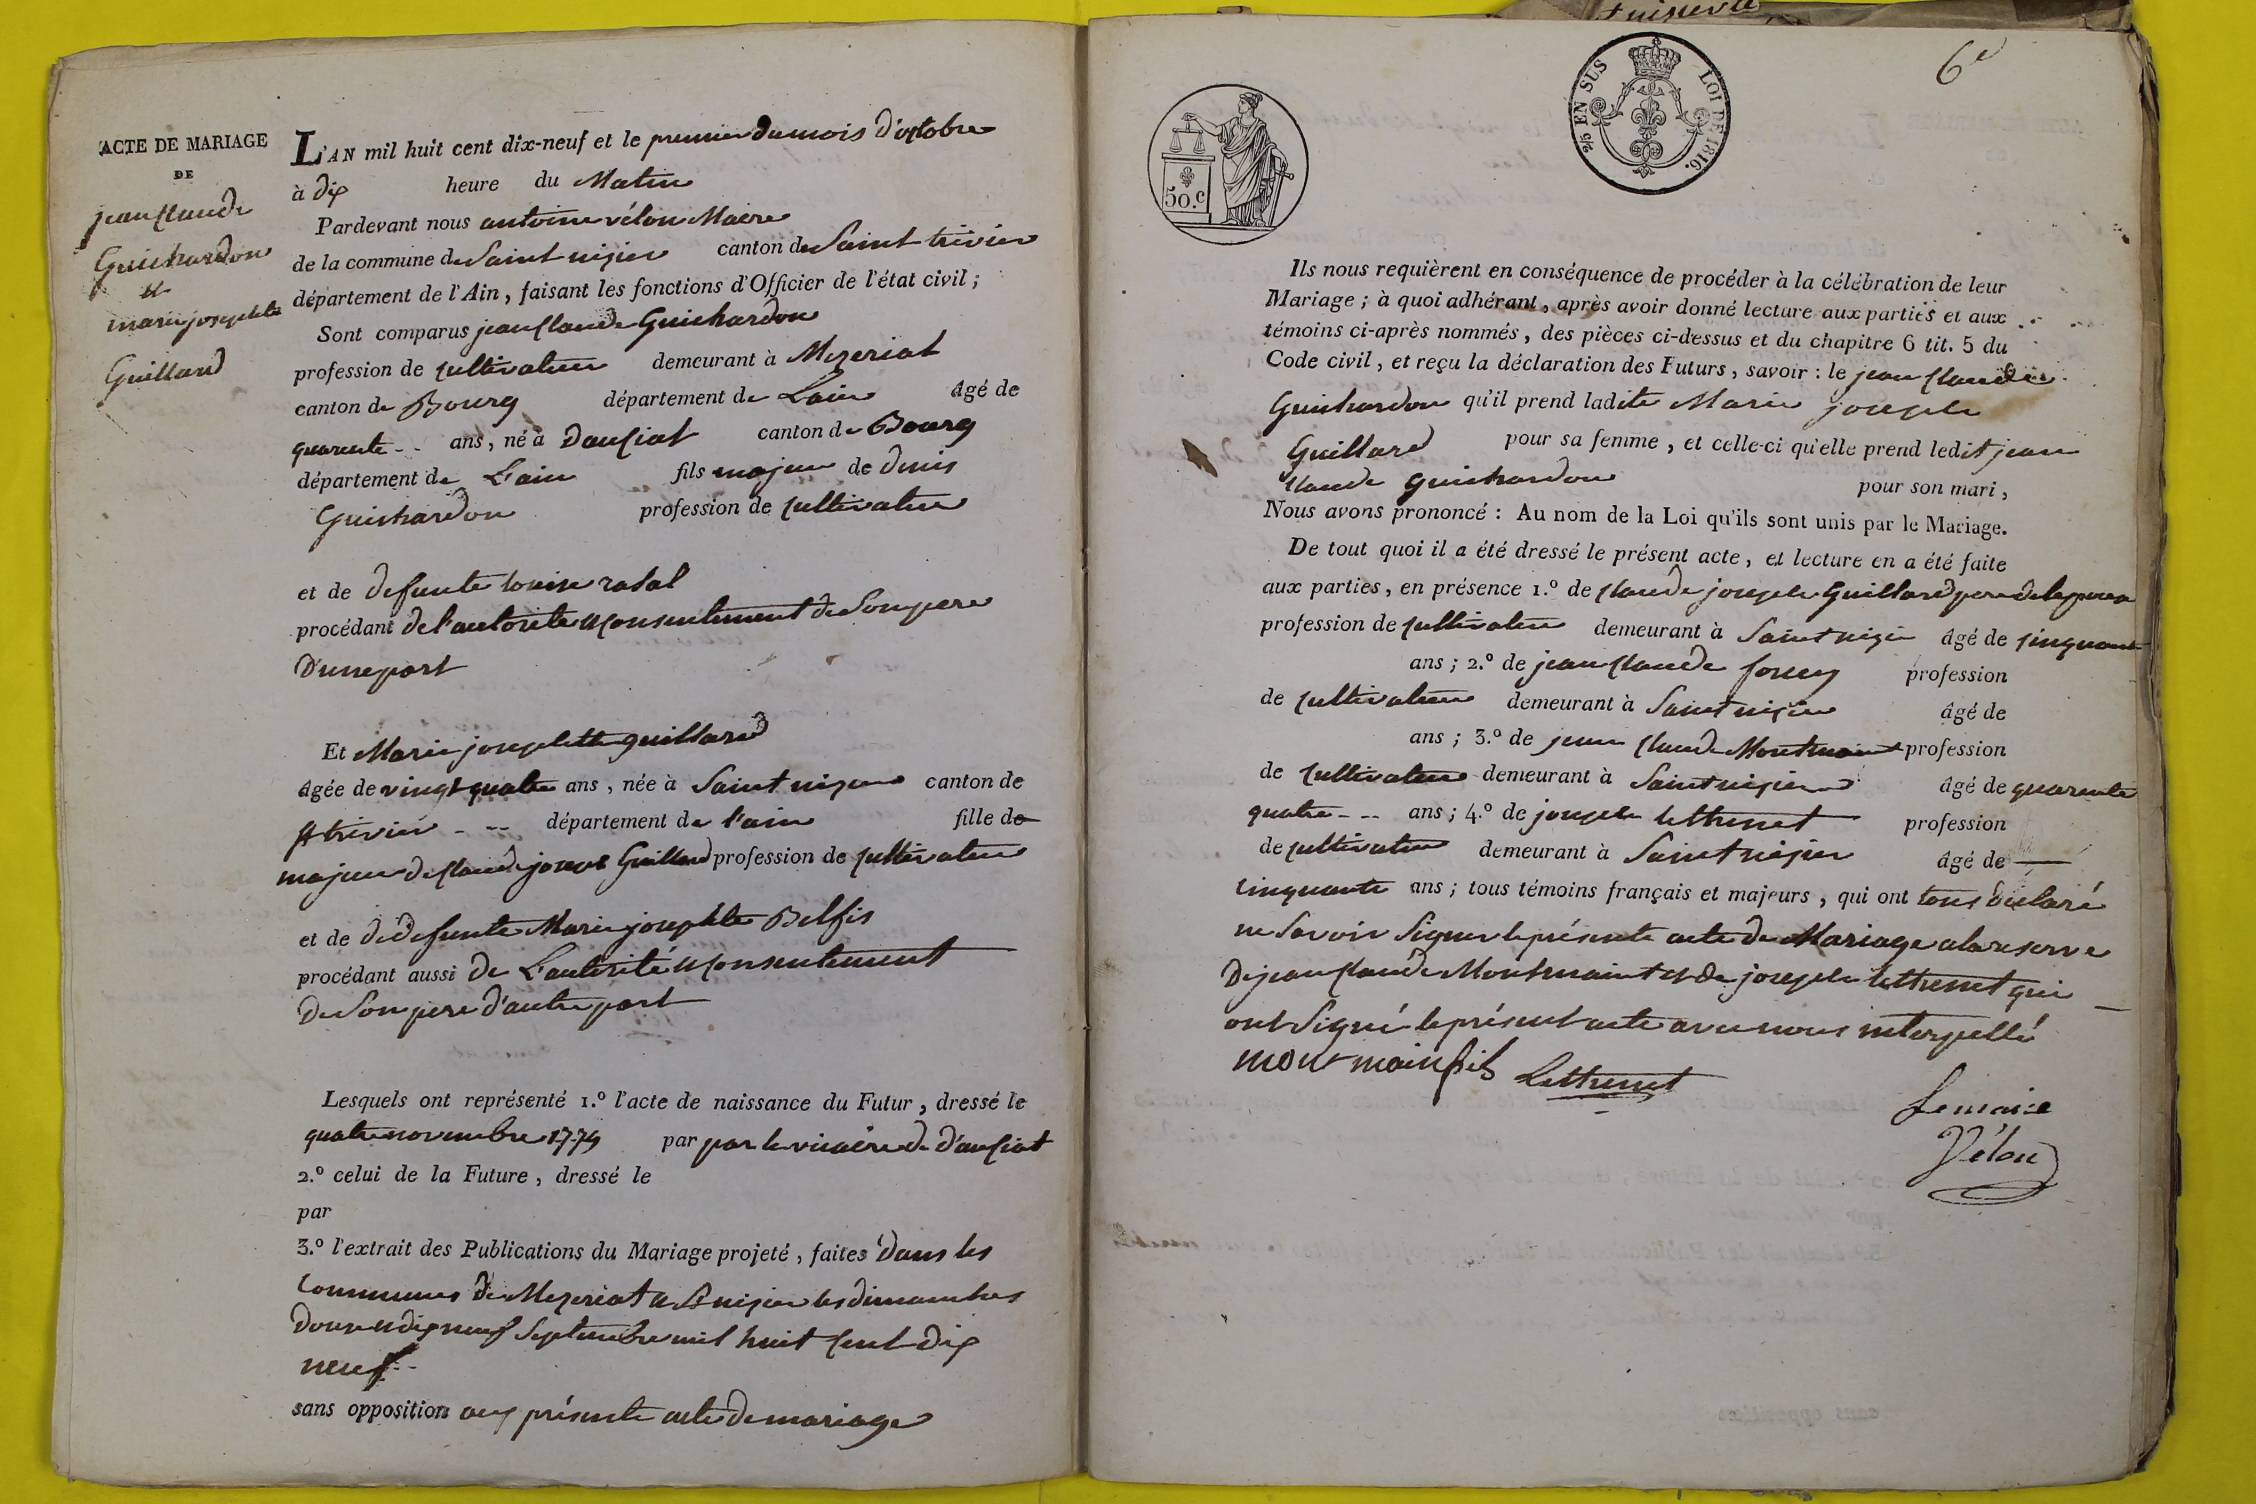 ACTE DE MARIAGE
DE
jean Claude
Guichardon
et
marie josephte
Guillard
L'AN mil huit cent dix-neuf et le premier du mois d'octobre
à dix heure du Matin
Pardevant nous antoine vélon Maire
de la commune de Saint nizier canton de Saint trivier
département de l'Ain, faisant les fonctions d'Officier de l'état civil;
Sont comparus jean Claude Guichardon
profession de Cultivateur demeurant à Mezeriat
canton de Bourg département de Lain âgé de
quarente -- ans, né à Dauciat canton de Bourg
département de L'ain fils majeur de denis
Guichardon profession de Cultivateur
et de defunte louise
procédant de l'autorité et Consentement de Son pere
D'une part
Et Marie josephtte guillard
âgée de vingt quatre ans, née à Saint nizier canton de
St trivier - -- département de l'ain fille de
majeure de Claude joseph Guillard profession de Cultivateur
et de de defunte Marie josephte Belfis
procédant aussi de L'autorité et Consentement
De Son pere d'autre part
Lesquels ont représenté 1.º l'acte de naissance du Futur, dressé le
quatre novembre 1779 par par le vicaire de d'auciat
2.º celui de la Future, dressé le
par
3.º l'extrait des Publications du Mariage projeté, faites dans les
Communes de Mezeriat et St nizier les dimanches
Douze et dix neuf Septembre mil huit Cent dix
neuf --
sans opposition aux présente acte de mariage
6e
50.c
2/5 EN SUS LOI DE 1816.
Ils nous requièrent en conséquence de procéder à la célébration de leur
Mariage; à quoi adhérant, après avoir donné lecture aux parties et aux
témoins ci-après nommés, des pièces ci-dessus et du chapitre 6 tit. 5 du
Code civil, et reçu la déclaration des Futurs, savoir: le jean Claude
Guichardon qu'il prend ladite Marie joseple
Guillard pour sa femme, et celle-ci qu'elle prend ledit jean
Claude guichardon pour son mari,
Nous avons prononcé: Au nom de la Loi qu'ils sont unis par le Mariage.
De tout quoi il a été dressé le présent acte, et lecture en a été faite
aux parties, en présence 1.º de Claude joseple Guillard pere de
profession de Cultivateur demeurant à Saint nizier âgé de cinquante
ans; 2.º de jean Claude profession
de Cultivateur demeurant à Saint nizier âgé de
ans; 3.º de jean Claude Montmain profession
de Cultivateur demeurant à Saint nizier âgé de quarente
quatre - -- ans; 4.º de joseple lethenet profession
de cultivateur demeurant à Saint nizier âgé de
cinquante ans; tous témoins français et majeurs, qui ont tous déclaré
ne Savoir Signer le présente acte de Mariage a la reserve
De jean Claude Montmain et de joseple lethenet qui
ont Signé le présent acte avec nous interpellé
mont main fils Lethenet
Le maire
Vélon